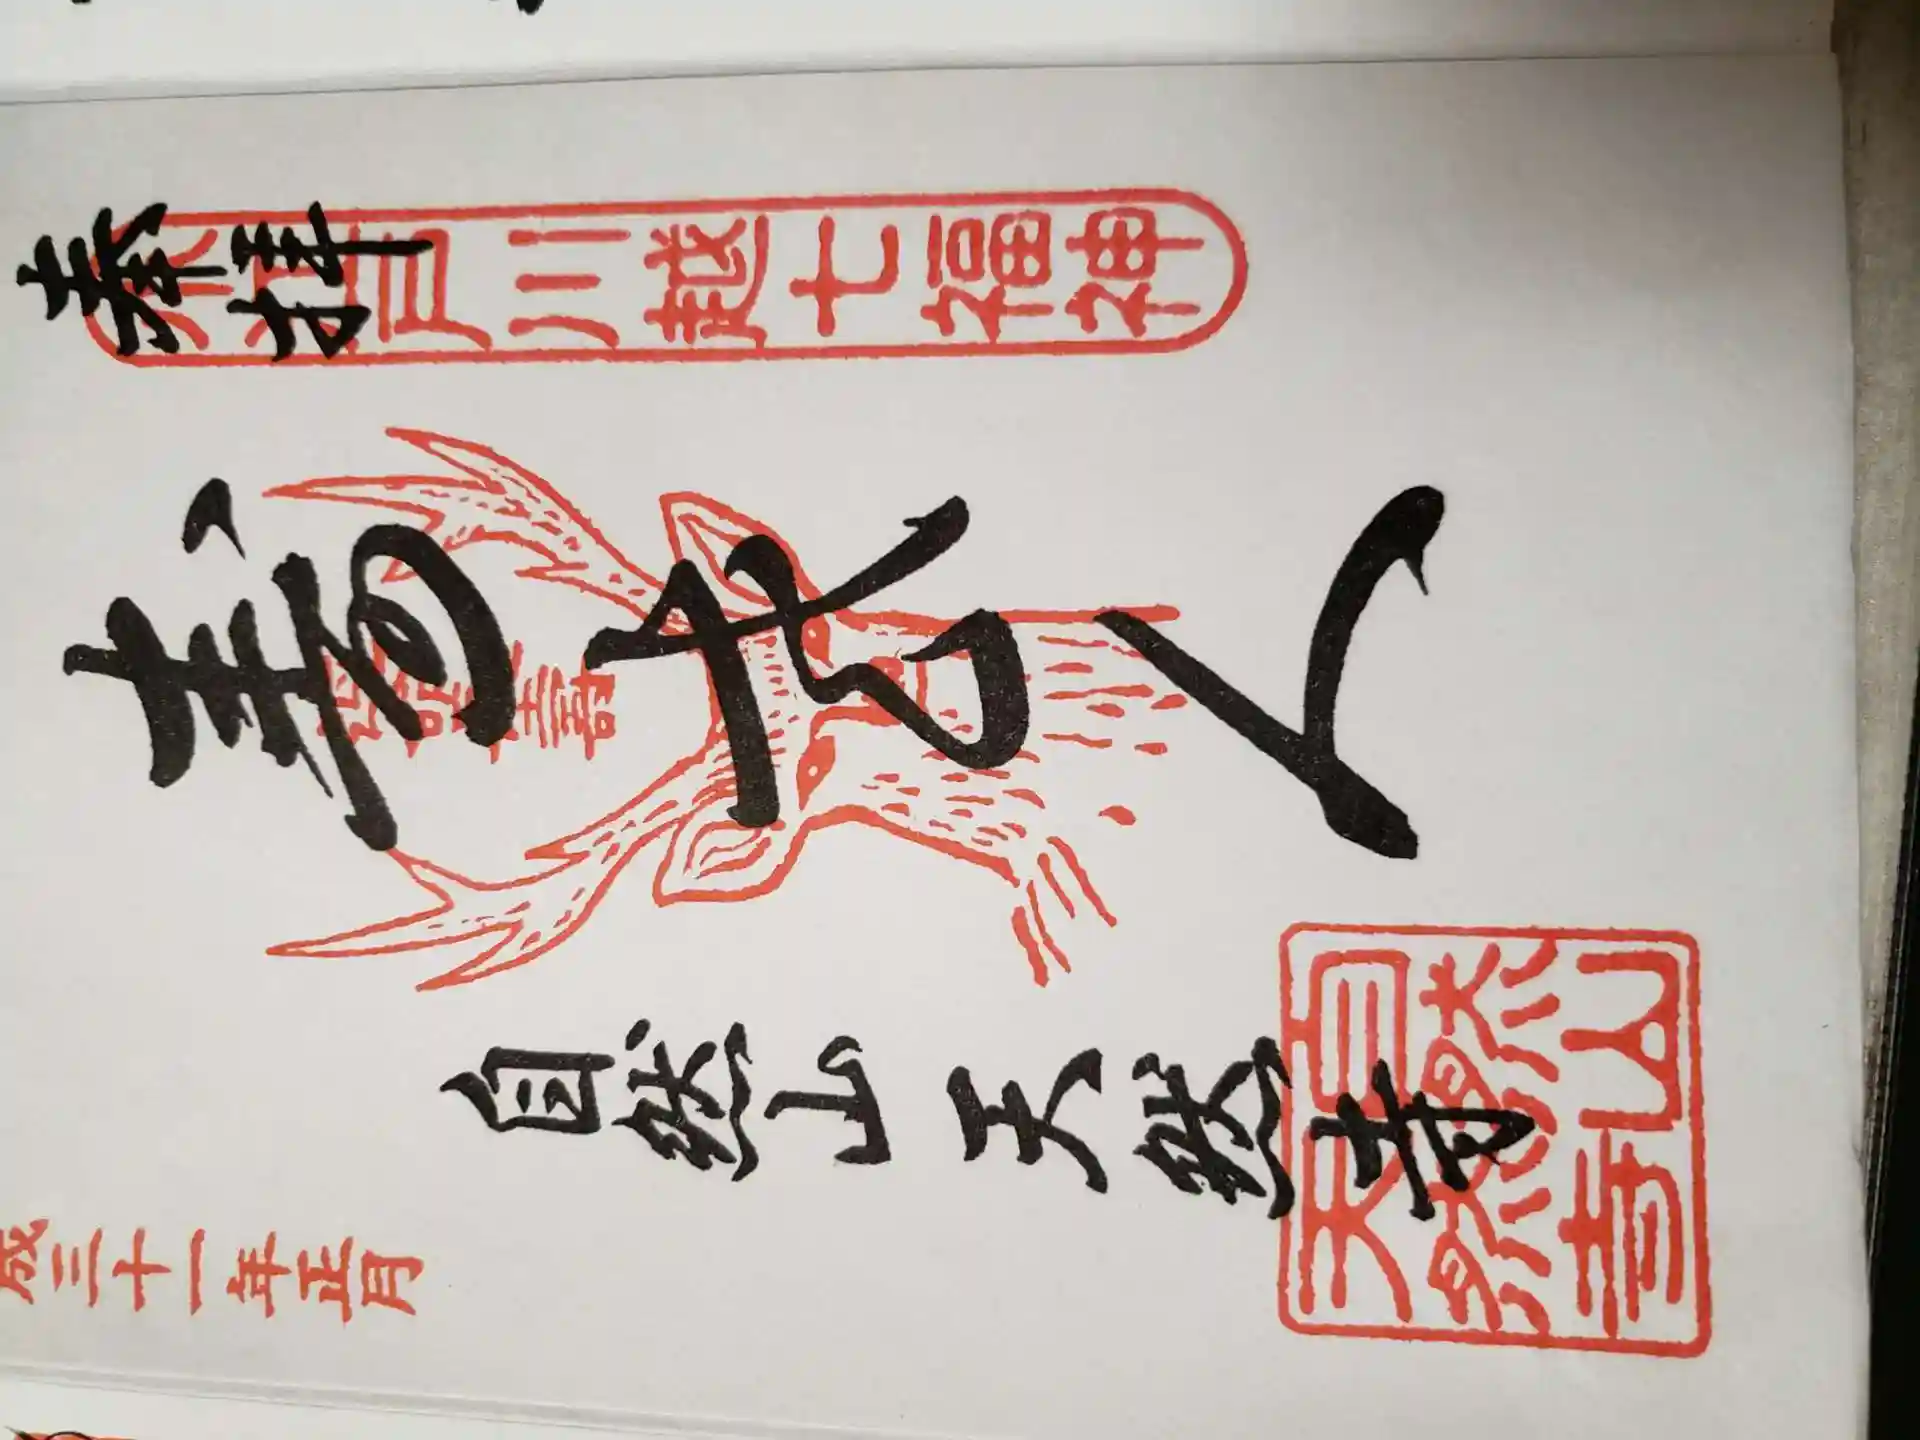 奉拝
小江戸川越七福神
寿老人
自然山天然寺
自然山
天然寺
成三十一年正月